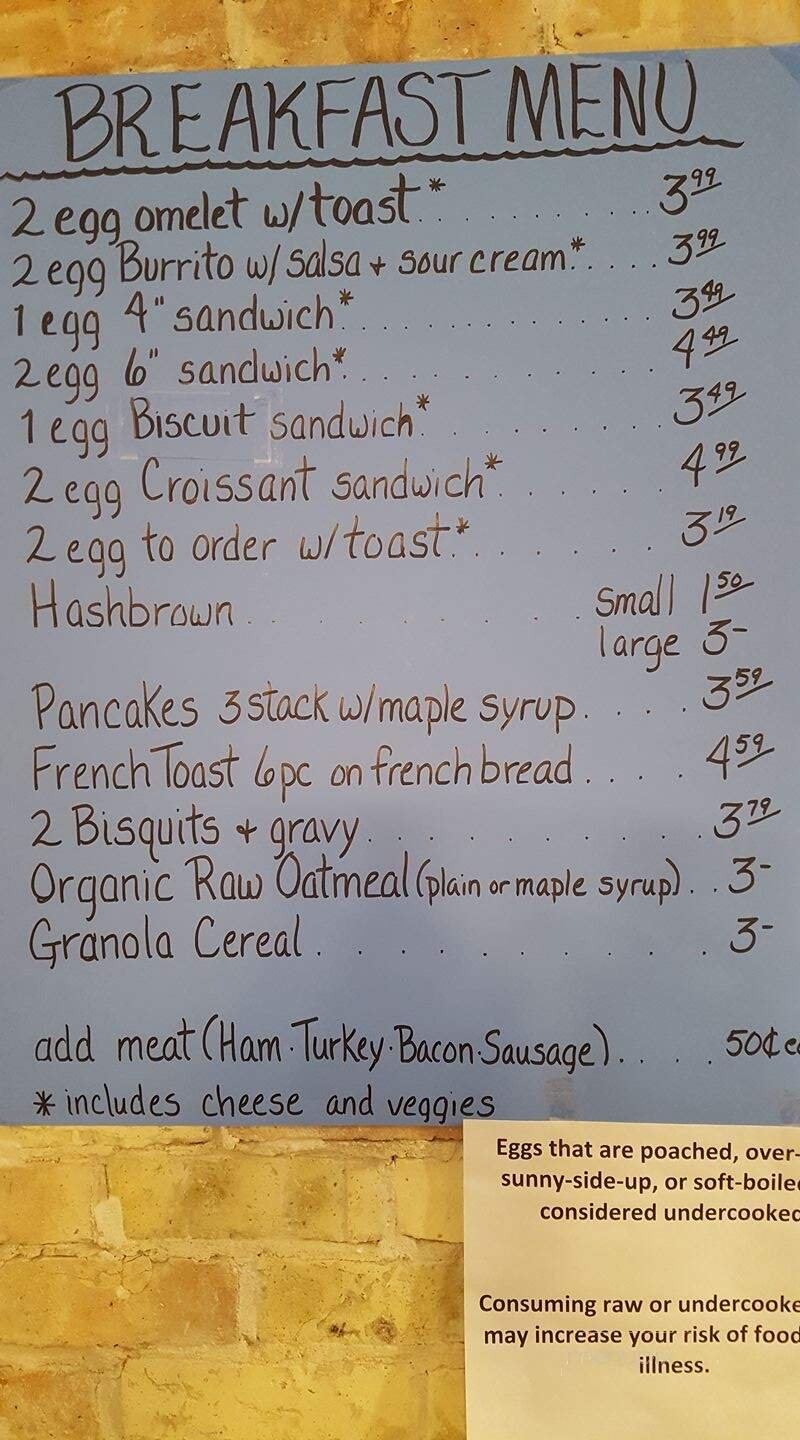 BREAKFAST MENU
2 egg omelet w/toast* . . . . . . . . . 3.99
2 egg Burrito w/ salsa + sour cream* . . . . 3.99
1 egg 4" sandwich* . . . . . . . . . . . . 3.49
2 egg 6" sandwich* . . . . . . . . . . . . 4.49
1 egg Biscuit sandwich* . . . . . . . . 3.49
2 egg Croissant sandwich* . . . . . . 4.99
2 egg to order w/toast* . . . . . . . 3.19
Hashbrown . . . . . . . . small 1.50
large 3-
Pancakes 3 stack w/maple syrup . . . . 3.59
French Toast 6pc on french bread . . . . 4.59
2 Bisquits + gravy . . . . . . . . . . . 3.79
Organic Raw Oatmeal (plain or maple syrup) . . 3-
Granola Cereal . . . . . . . . . . 3-
add meat (Ham · Turkey · Bacon · Sausage) . . . . 50¢
* includes cheese and veggies
Eggs that are poached, over-
sunny-side-up, or soft-boile
considered undercooked
Consuming raw or undercooke
may increase your risk of food
illness.